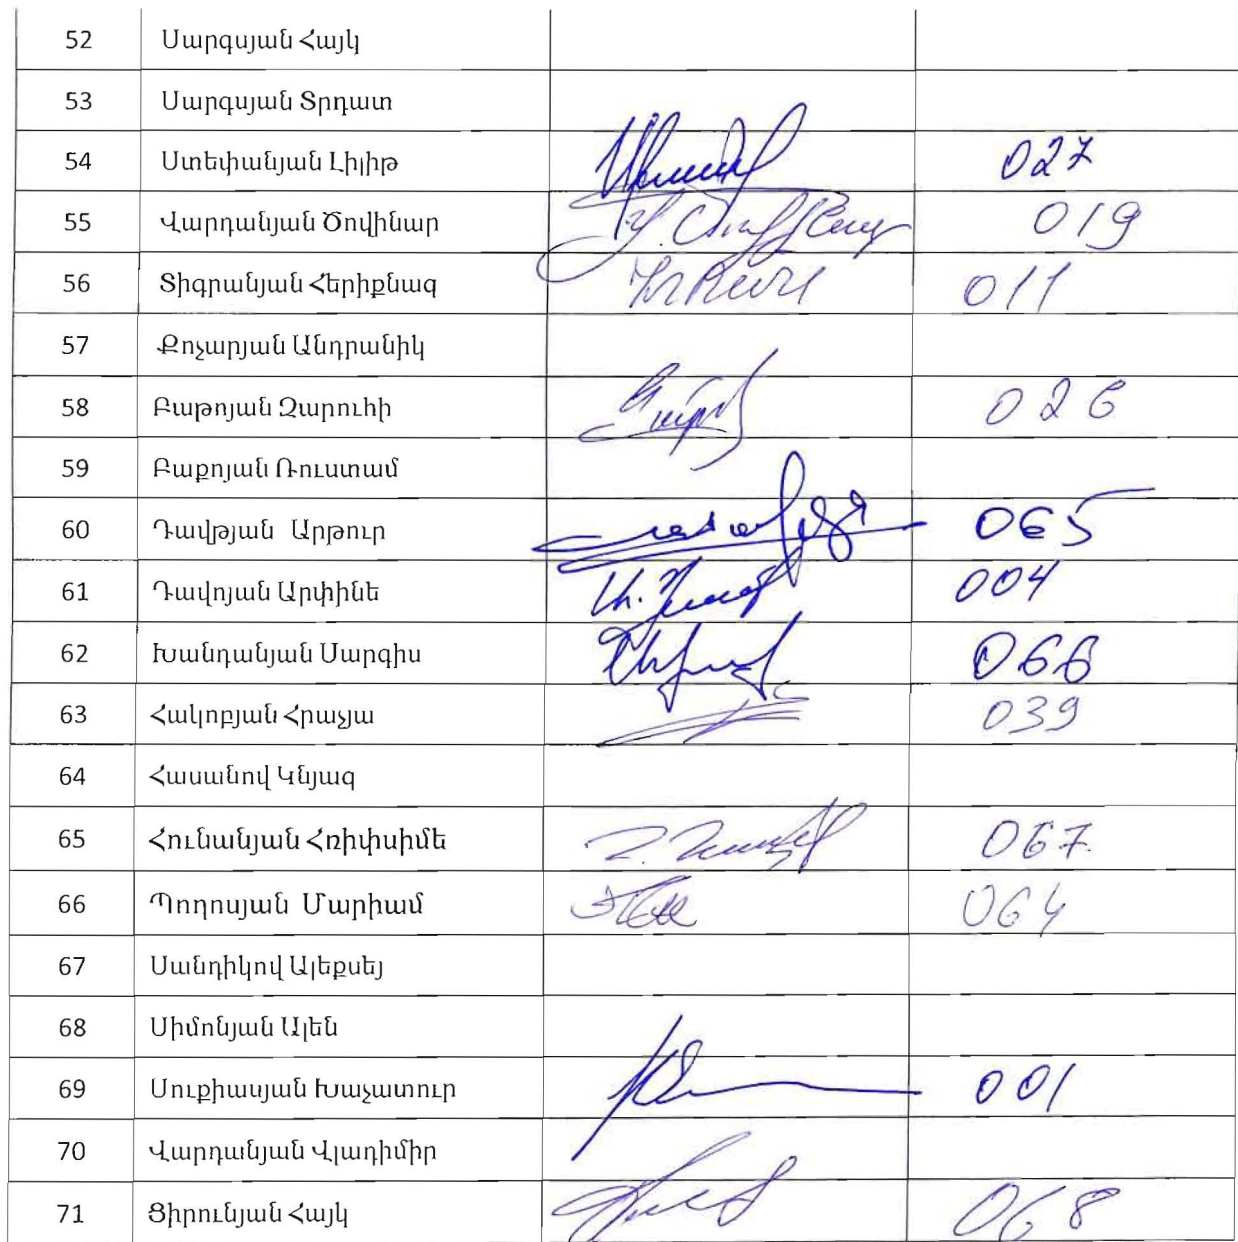 52 Սարգսյան Հայկ
53 Սարգսյան Տրդատ
54 Ստեփանյան Լիլիթ 027
55 Վարդանյան Ծովինար 019
56 Տիգրանյան Հերիքնազ 011
57 Քոչարյան Անդրանիկ
58 Բաթոյան Զարուհի 026
59 Բաքոյան Ռուստամ
60 Դավթյան Արթուր 065
61 Դավոյան Արփինե 004
62 Խանդանյան Սարգիս 066
63 Հակոբյան Հրաչյա 039
64 Հասանով Կնյազ
65 Հունանյան Հռիփսիմե 067
66 Պողոսյան Մարիամ 064
67 Սանդիկով Ալեքսեյ
68 Սիմոնյան Ալեն
69 Սուքիասյան Խաչատուր 001
70 Վարդանյան Վլադիմիր
71 Ցիրունյան Հայկ 068